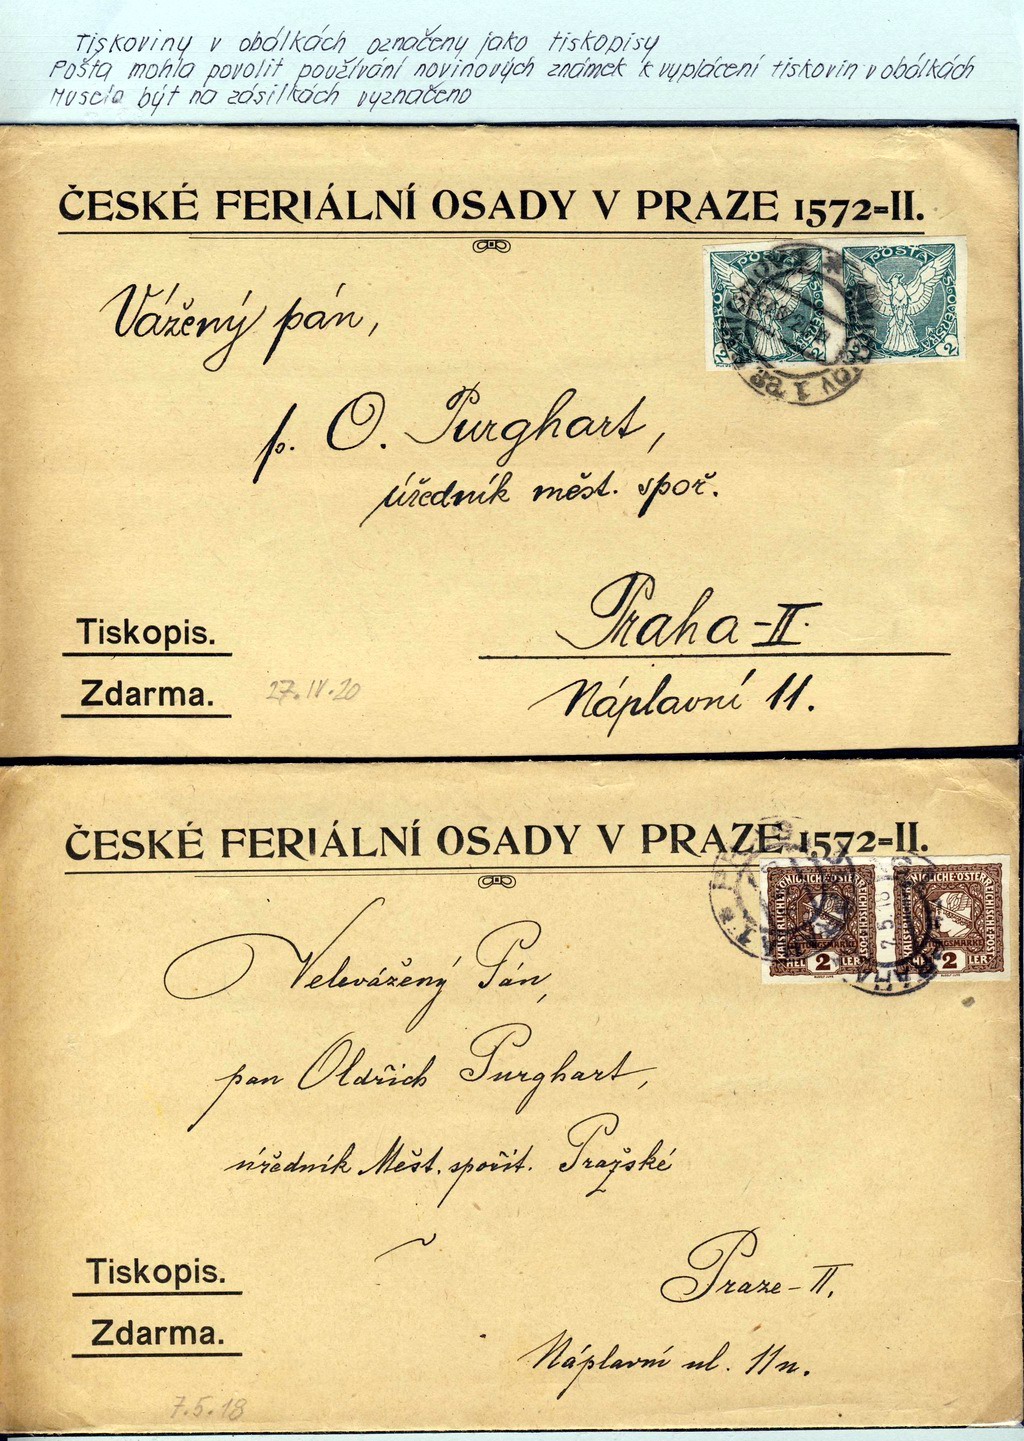 Tiskoviny v obálkách označeny jako tiskopisy
Pošta mohla povolit používání novinových známek k vyplácení tiskovin v obálkách
Muselo být na zásilkách vyznačeno
ČESKÉ FERIÁLNÍ OSADY V PRAZE 1572=II.
POŠTA
POŠTA
2
2
Vážený pán,
p. O. Purghart,
úředník měst. spoř.
Praha-II.
Náplavní 11.
Tiskopis.
Zdarma.
27.IV.20
ČESKÉ FERIÁLNÍ OSADY V PRAZE 1572=II.
KAISERLICHE KÖNIGLICHE ÖSTERREICHISCHE POST
HEL 2 LER
HEL 2 LER
7.5.18
Velevážený Pán,
pan Oldřich Purghart,
úředník Měst. spořit. Pražské
Praze-II,
Náplavní ul. 11n.
Tiskopis.
Zdarma.
7.5.18